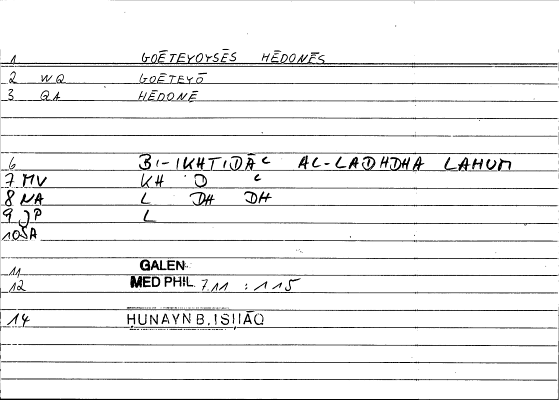 1 GOĒTEYOYSĒS HĒDONĒS
2 WQ GOĒTEYŌ
3 QA HĒDONĒ
6 BI-IKHTIDĀC AL-LADHDHA LAHUM
7 MV KH D C
8 NA L DH DH
9 JP L
10 SA
11 GALEN
12 MED PHIL. 711 : 115
14 ḤUNAYN B. ISḤĀQ